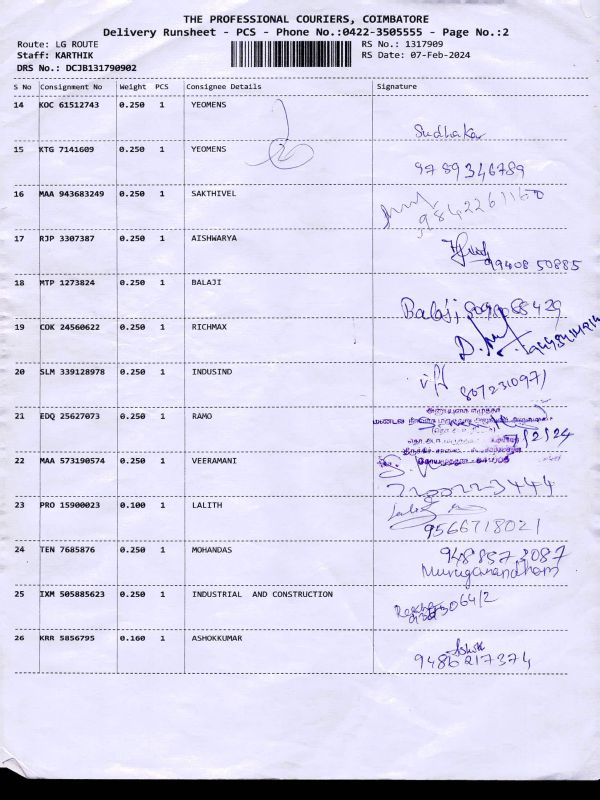 THE PROFESSIONAL COURIERS, COIMBATORE
Delivery Runsheet - PCS - Phone No.:0422-3505555 - Page No.:2
Route: LG ROUTE RS No.: 1317909
Staff: KARTHIK RS Date: 07-Feb-2024
DRS No.: DCJB131790902
S No Consignment No Weight PCS Consignee Details Signature
14 KOC 61512743 0.250 1 YEOMENS Sudhakar
15 KTG 7141609 0.250 1 YEOMENS 9789346789
16 MAA 943683249 0.250 1 SAKTHIVEL 9842261160
17 RJP 3307387 0.250 1 AISHWARYA 99408 50885
18 MTP 1273824 0.250 1 BALAJI Balaji
19 COK 24560622 0.250 1 RICHMAX
20 SLM 339128978 0.250 1 INDUSIND 807231097/
21 EDQ 25627073 0.250 1 RAMO 7/2/24
22 MAA 573190574 0.250 1 VEERAMANI
23 PRO 15900023 0.100 1 LALITH 9566718021
24 TEN 7685876 0.250 1 MOHANDAS 9488573087
Muruganandham
25 IXM 505885623 0.250 1 INDUSTRIAL AND CONSTRUCTION
26 KRR 5856795 0.160 1 ASHOKKUMAR Ashok
9486217374